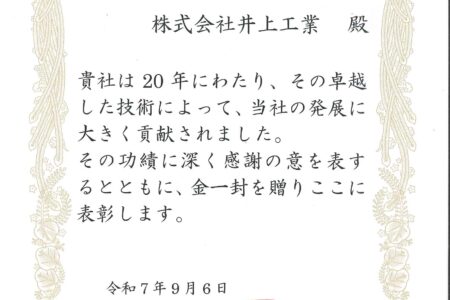 株式会社井上工業 殿
貴社は20年にわたり、その卓越
した技術によって、当社の発展に
大きく貢献されました。
その功績に深く感謝の意を表す
るとともに、金一封を贈りここに
表彰します。
令和7年9月6日